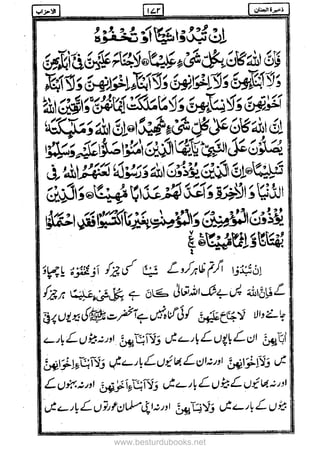 ذخيرة الجنان ١٧٢ الاحزاب
اِنْ تُبْدُوْا شَيْئًا اَوْ تُخْفُوْهُ
فَاِنَّ اللّٰهَ كَانَ بِكُلِّ شَيْءٍ عَلِيْمًا ۞ لَا جُنَاحَ عَلَيْهِنَّ فِيْٓ اٰبَآئِهِنَّ
وَلَآ اَبْنَآئِهِنَّ وَلَآ اِخْوَانِهِنَّ وَلَآ اَبْنَآءِ اِخْوَانِهِنَّ وَلَآ اَبْنَآءِ
اَخَوٰتِهِنَّ وَلَا نِسَآئِهِنَّ وَلَا مَا مَلَكَتْ اَيْمَانُهُنَّ ۚ وَاتَّقِيْنَ اللّٰهَ ۭ
اِنَّ اللّٰهَ كَانَ عَلٰى كُلِّ شَيْءٍ شَهِيْدًا ۞ اِنَّ اللّٰهَ وَمَلٰٓئِكَتَهٗ
يُصَلُّوْنَ عَلَى النَّبِيِّ ۭ يٰٓاَيُّهَا الَّذِيْنَ اٰمَنُوْا صَلُّوْا عَلَيْهِ وَسَلِّمُوْا
تَسْلِيْمًا ۞ اِنَّ الَّذِيْنَ يُؤْذُوْنَ اللّٰهَ وَرَسُوْلَهٗ لَعَنَهُمُ اللّٰهُ فِي
الدُّنْيَا وَالْاٰخِرَةِ وَاَعَدَّ لَهُمْ عَذَابًا مُّهِيْنًا ۞ وَالَّذِيْنَ
يُؤْذُوْنَ الْمُؤْمِنِيْنَ وَالْمُؤْمِنٰتِ بِغَيْرِ مَا اكْتَسَبُوْا فَقَدِ احْتَمَلُوْا
بُهْتَانًا وَّاِثْمًا مُّبِيْنًا ۞
اِنْ تُبْدُوْا اگر تم ظاہر کرو گے شَيْئًا کسی چیز کو اَوْ تُخْفُوْهُ یا چھپاؤ
گے فَاِنَّ اللّٰهَ پس بے شک اللہ تعالیٰ كَانَ ہے بِكُلِّ شَيْءٍ عَلِيْمًا ہر چیز کو
جاننے والا لَا جُنَاحَ عَلَيْهِنَّ کوئی گناہ نہیں ہے آنحضرت ﷺ کی بیویوں پر فِيْٓ
اٰبَآئِهِنَّ ان کے باپوں کے بارے میں وَلَآ اَبْنَآئِهِنَّ اور نہ بیٹوں کے بارے
میں وَلَآ اِخْوَانِهِنَّ اور نہ ان کے بھائیوں کے بارے میں وَلَآ اَبْنَآءِ اِخْوَانِهِنَّ
اور نہ بھائیوں کے بیٹوں کے بارے میں وَلَآ اَبْنَآءِ اَخَوٰتِهِنَّ اور نہ بہنوں کے
بیٹوں کے بارے میں وَلَا نِسَآئِهِنَّ اور نہ اپنی مسلمان عورتوں کے بارے میں
www.besturdubooks.net